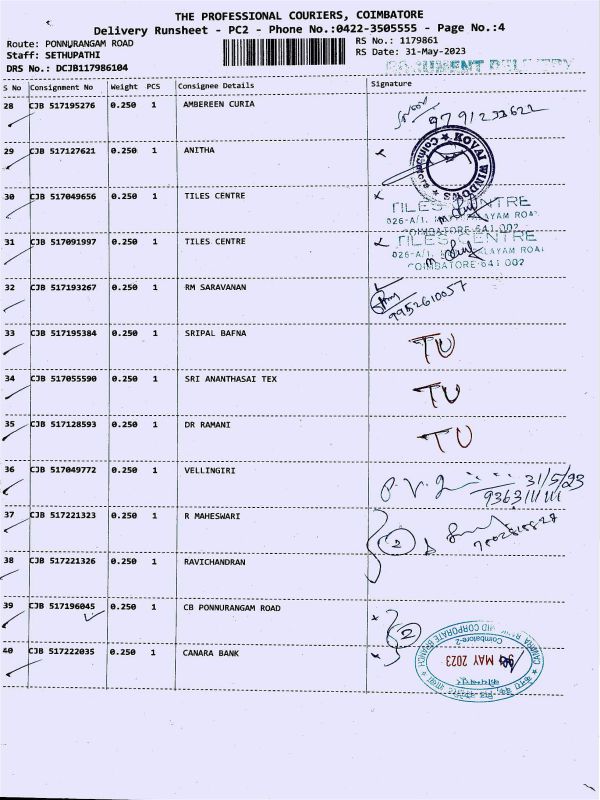 THE PROFESSIONAL COURIERS, COIMBATORE
Delivery Runsheet - PC2 - Phone No.:0422-3505555 - Page No.:4
Route: PONNURANGAM ROAD RS No.: 1179861
Staff: SETHUPATHI RS Date: 31-May-2023
DRS No.: DCJB117986104 DOCUMENT DELIVERY
S No Consignment No Weight PCS Consignee Details Signature
28 CJB 517195276 0.250 1 AMBEREEN CURIA 9791233622
29 CJB 517127621 0.250 1 ANITHA KOVAI WINDOWS
30 CJB 517049656 0.250 1 TILES CENTRE TILES CENTRE
COIMBATORE-641 002
31 CJB 517091997 0.250 1 TILES CENTRE TILES CENTRE
COIMBATORE-641 002
32 CJB 517193267 0.250 1 RM SARAVANAN 9952610057
33 CJB 517195384 0.250 1 SRIPAL BAFNA TU
34 CJB 517055590 0.250 1 SRI ANANTHASAI TEX TU
35 CJB 517128593 0.250 1 DR RAMANI TU
36 CJB 517049772 0.250 1 VELLINGIRI P.V. 31/5/23
37 CJB 517221323 0.250 1 R MAHESWARI 2
38 CJB 517221326 0.250 1 RAVICHANDRAN
39 CJB 517196045 0.250 1 CB PONNURANGAM ROAD 2
40 CJB 517222035 0.250 1 CANARA BANK MAY 2023
MID CORPORATE BRANCH
Coimbatore-2